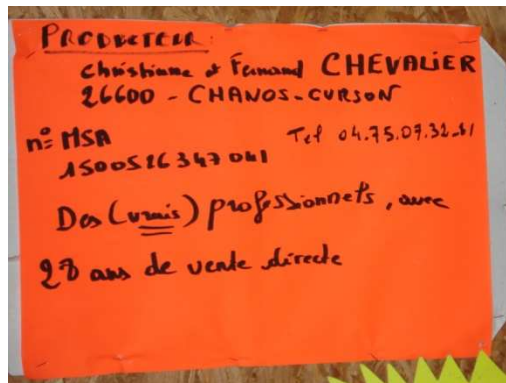 PRODUCTEUR:
Christiane et Fernand CHEVALIER
26600 - CHANOS-CURSON
n° MSA
Tel 04.75.07.32.41
1500526347041
Des (vrais) professionnels, avec
28 ans de vente directe